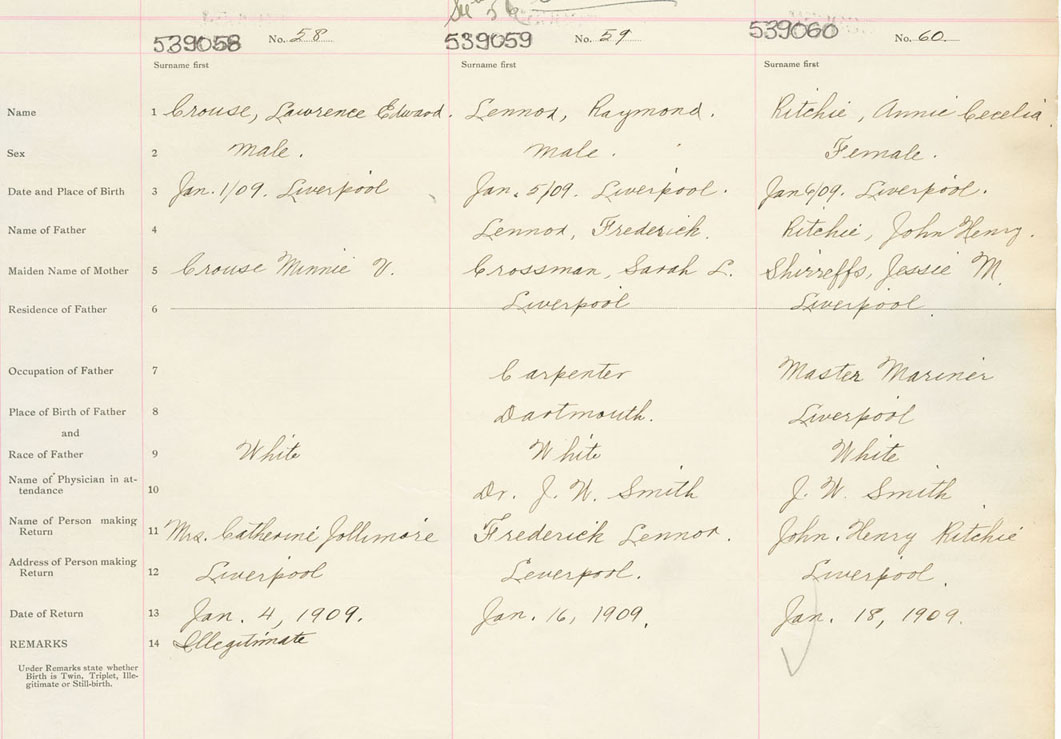 539058 No. 58 539059 No. 59 539060 No. 60.
Surname first Surname first Surname first
Name 1 Crouse, Lawrence Edward. Lennox, Raymond. Ritchie, Annie Cecelia.
Sex 2 Male. Male. Female.
Date and Place of Birth 3 Jan. 1/09. Liverpool Jan. 5/09. Liverpool. Jan 6/09. Liverpool.
Name of Father 4 Lennox, Frederick. Ritchie, John Henry.
Maiden Name of Mother 5 Crouse Minnie V. Crossman, Sarah L. Shirreffs, Jessie M.
Residence of Father 6 Liverpool Liverpool.
Occupation of Father 7 Carpenter Master Mariner
Place of Birth of Father 8 Dartmouth. Liverpool
and
Race of Father 9 White White White
Name of Physician in at-
tendance 10 Dr. J. W. Smith J. W. Smith
Name of Person making
Return 11 Mrs. Catherine Jollimore Frederick Lennox. John. Henry Ritchie
Address of Person making
Return 12 Liverpool Leverpool. Liverpool.
Date of Return 13 Jan. 4, 1909. Jan. 16, 1909. Jan. 18, 1909.
REMARKS 14 Illegitimate
Under Remarks state whether
Birth is Twin, Triplet, Ille-
gitimate or Still-birth.